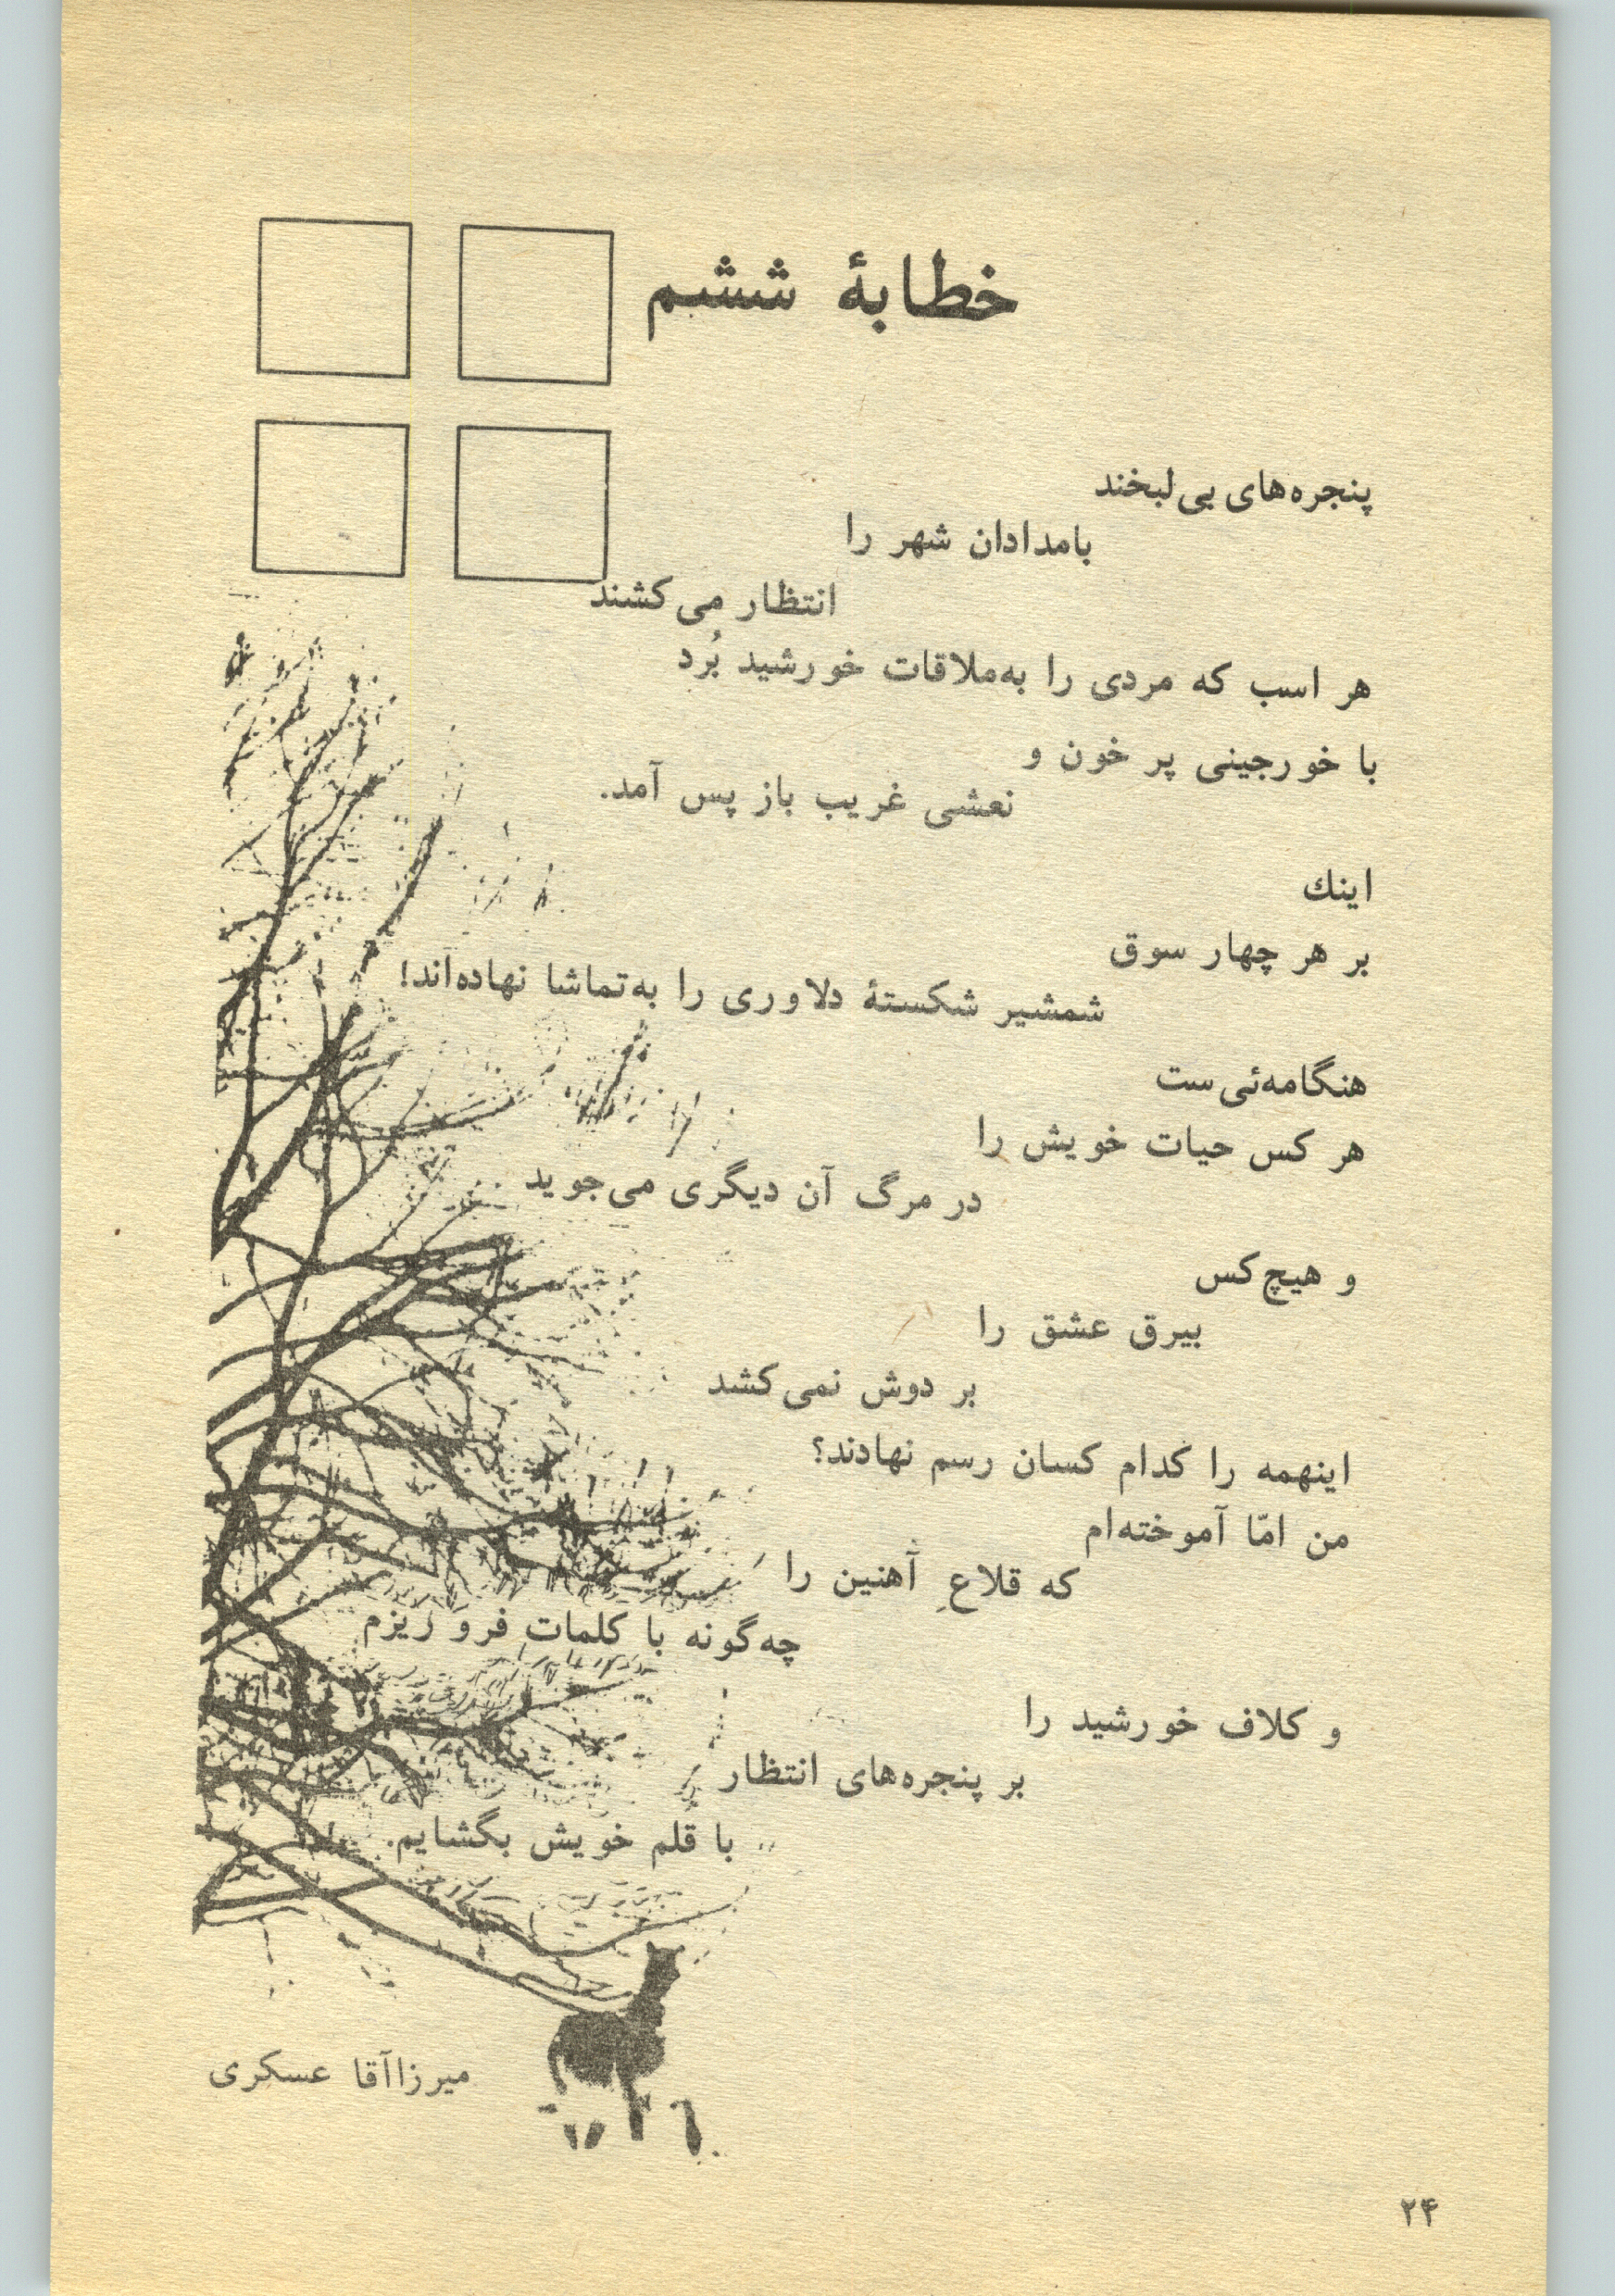 خطابهٔ ششم
پنجره‌های بی‌لبخند
بامدادان شهر را
انتظار می‌کشند
هر اسب که مردی را به‌ملاقات خورشید بُرد
با خورجینی پر خون و
نعشی غریب باز پس آمد.
اینك
بر هر چهار سوق
شمشیر شکستهٔ دلاوری را به‌تماشا نهاده‌اند!
هنگامه‌ئی‌ست
هر کس حیات خویش را
در مرگ آن دیگری می‌جوید
و هیچ‌کس
بیرق عشق را
بر دوش نمی‌کشد
اینهمه را کدام کسان رسم نهادند؟
من امّا آموخته‌ام
که قلاعِ آهنین را
چه‌گونه با کلمات فرو ریزم
و کلاف خورشید را
بر پنجره‌های انتظار
با قلم خویش بگشایم.
میرزاآقا عسکری
۲۴